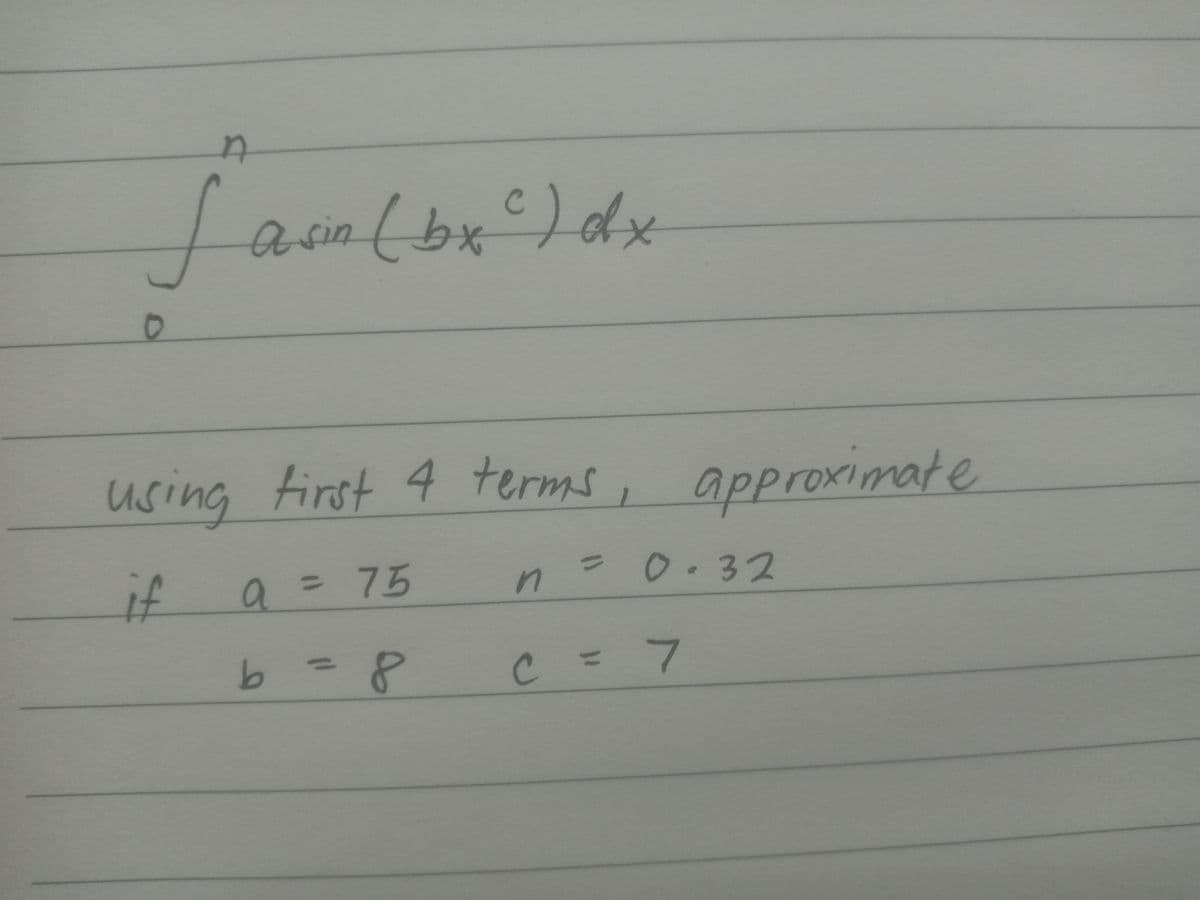 n
∫ a sin ( bx^c ) dx
0
using first 4 terms, approximate
if a = 75 n = 0.32
b = 8 c = 7